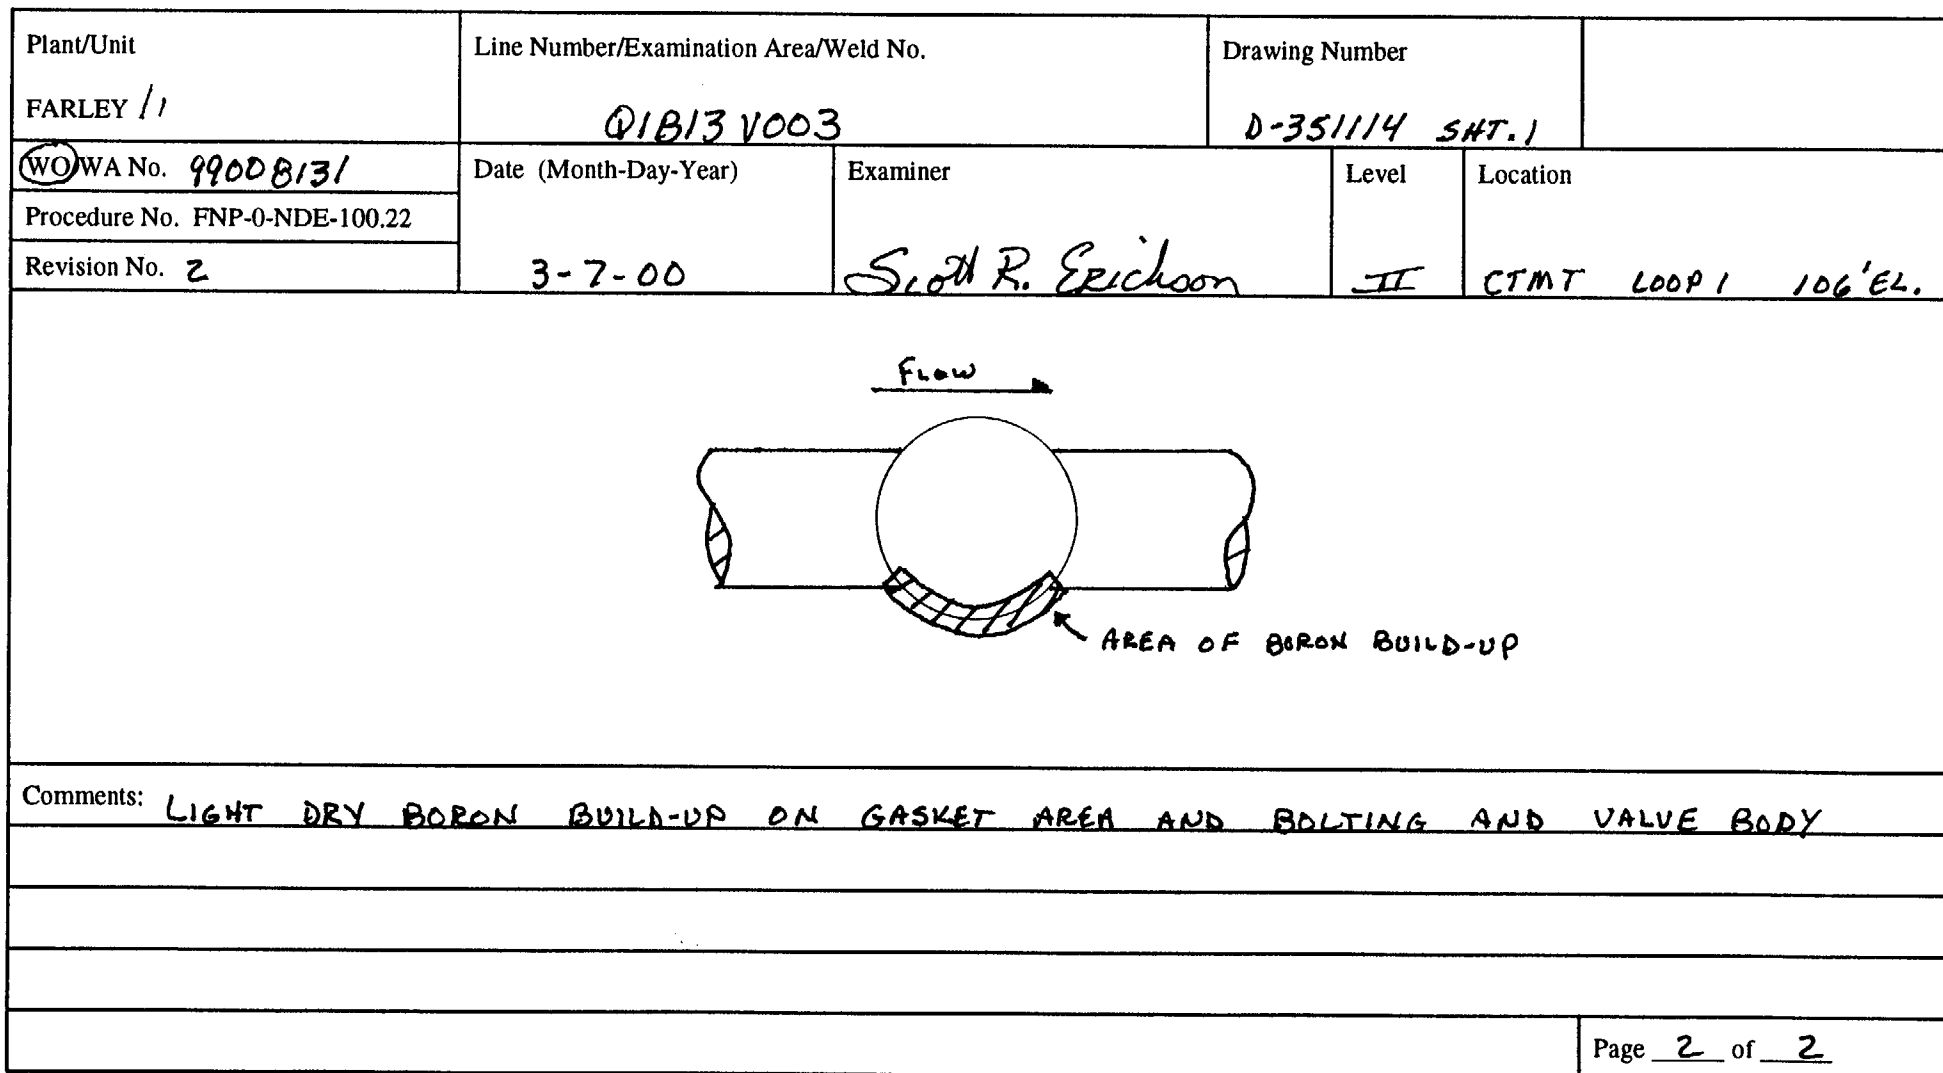 Plant/Unit
FARLEY /1
Line Number/Examination Area/Weld No.
Q1B13V003
Drawing Number
D-351114 SHT.1
WO/WA No. 99008131
Procedure No. FNP-0-NDE-100.22
Revision No. 2
Date (Month-Day-Year)
3-7-00
Examiner
Scott R. Erickson
Level
II
Location
CTMT LOOP 1 106'EL.
FLOW
AREA OF BORON BUILD-UP
Comments: LIGHT DRY BORON BUILD-UP ON GASKET AREA AND BOLTING AND VALVE BODY
Page 2 of 2